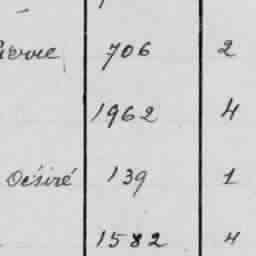 Pierre 706 2
1962 4
Désiré 139 1
1582 4